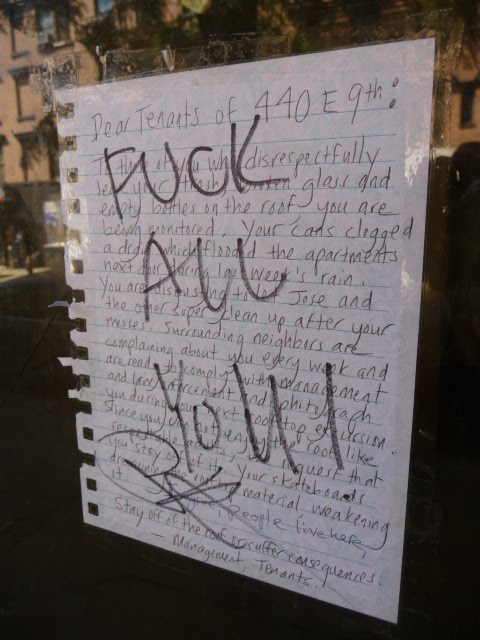 Dear Tenants of 440 E 9th:
FUCK
disrespectfully
glass and
empty bottles on the roof, you are
being monitored. Your cans clogged
a drain which flooded the apartments
next door during last week's rain.
ALL
You are disgusting to let Jose and
the other super clean up after your
messes. Surrounding neighbors are
complaining about you every week and
are ready to comply with management
and law enforcement and photograph
you during your next rooftop excursion.
YOU!!
Since you not enjoy the roof like
request that
you stay off it. Your skateboards
material weakening
it. People live here,
Stay off of the roof or suffer consequences.
— Management, Tenants.